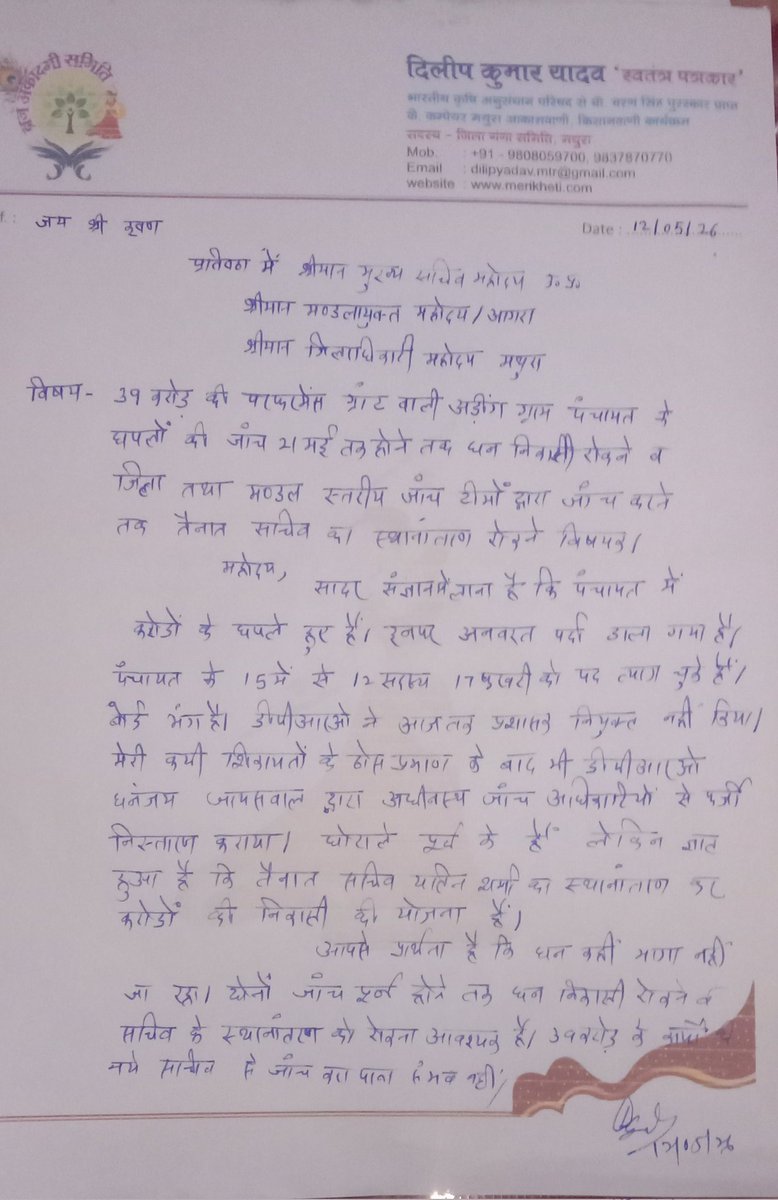 ब्रज अकादमी समिति
दिलीप कुमार यादव 'स्वतंत्र पत्रकार'
भारतीय कृषि अनुसंधान परिषद से चौ. चरण सिंह पुरस्कार प्राप्त
के. कम्पेयर मथुरा आकाशवाणी, किसानवाणी कार्यक्रम
सदस्य - जिला गंगा समिति, मथुरा
Mob. : +91 - 9808059700, 9837870770
Email : dilipyadav.mtr@gmail.com
website : www.merikheti.com
जय श्री कृष्ण
Date : 12/05/26
प्रतिष्ठा में श्रीमान मुख्य सचिव महोदय उ.प्र.
श्रीमान मण्डलायुक्त महोदय/आगरा
श्रीमान जिलाधिकारी महोदय मथुरा
विषय- 39 करोड़ की परफरमेंस ग्रांट वाली अड़ींग ग्राम पंचायत के
घपलों की जांच 21 मई तक होने तक धन निकासी रोकने व
जिला तथा मण्डल स्तरीय जांच टीमों द्वारा जांच करने
तक तैनात सचिव का स्थानांतरण रोकने विषयक।
महोदय,
सादर संज्ञान में लाना है कि पंचायत में
करोडों के घपले हुए हैं। इनपर अनवरत पर्दा डाला गया है।
पंचायत के 15 में से 12 सदस्य 17 फरवरी को पद त्याग चुके हैं।
बोर्ड भंग है। डीपीआरओ ने आजतक प्रशासक नियुक्त नहीं किया।
मेरी कयी शिकायतों के ठोस प्रमाण के बाद भी डीपीआरओ
धनंजय जायसवाल द्वारा अधीनस्थ जांच अधिकारियों से फर्जी
निस्तारण कराया। घोटाले पूर्व के हैं लेकिन ज्ञात
हुआ है कि तैनात सचिव यतिन शर्मा का स्थानांतरण कर
करोडों की निकासी की योजना है।
आपसे प्रार्थना है कि धन कहीं भागा नहीं
जा रहा। दोनों जांच पूर्ण होने तक धन निकासी रोकने व
सचिव के स्थानांतरण को रोकना आवश्यक है। 39 करोड़ के
नये सचिव से जांच करा पाना संभव नहीं।
12/05/26